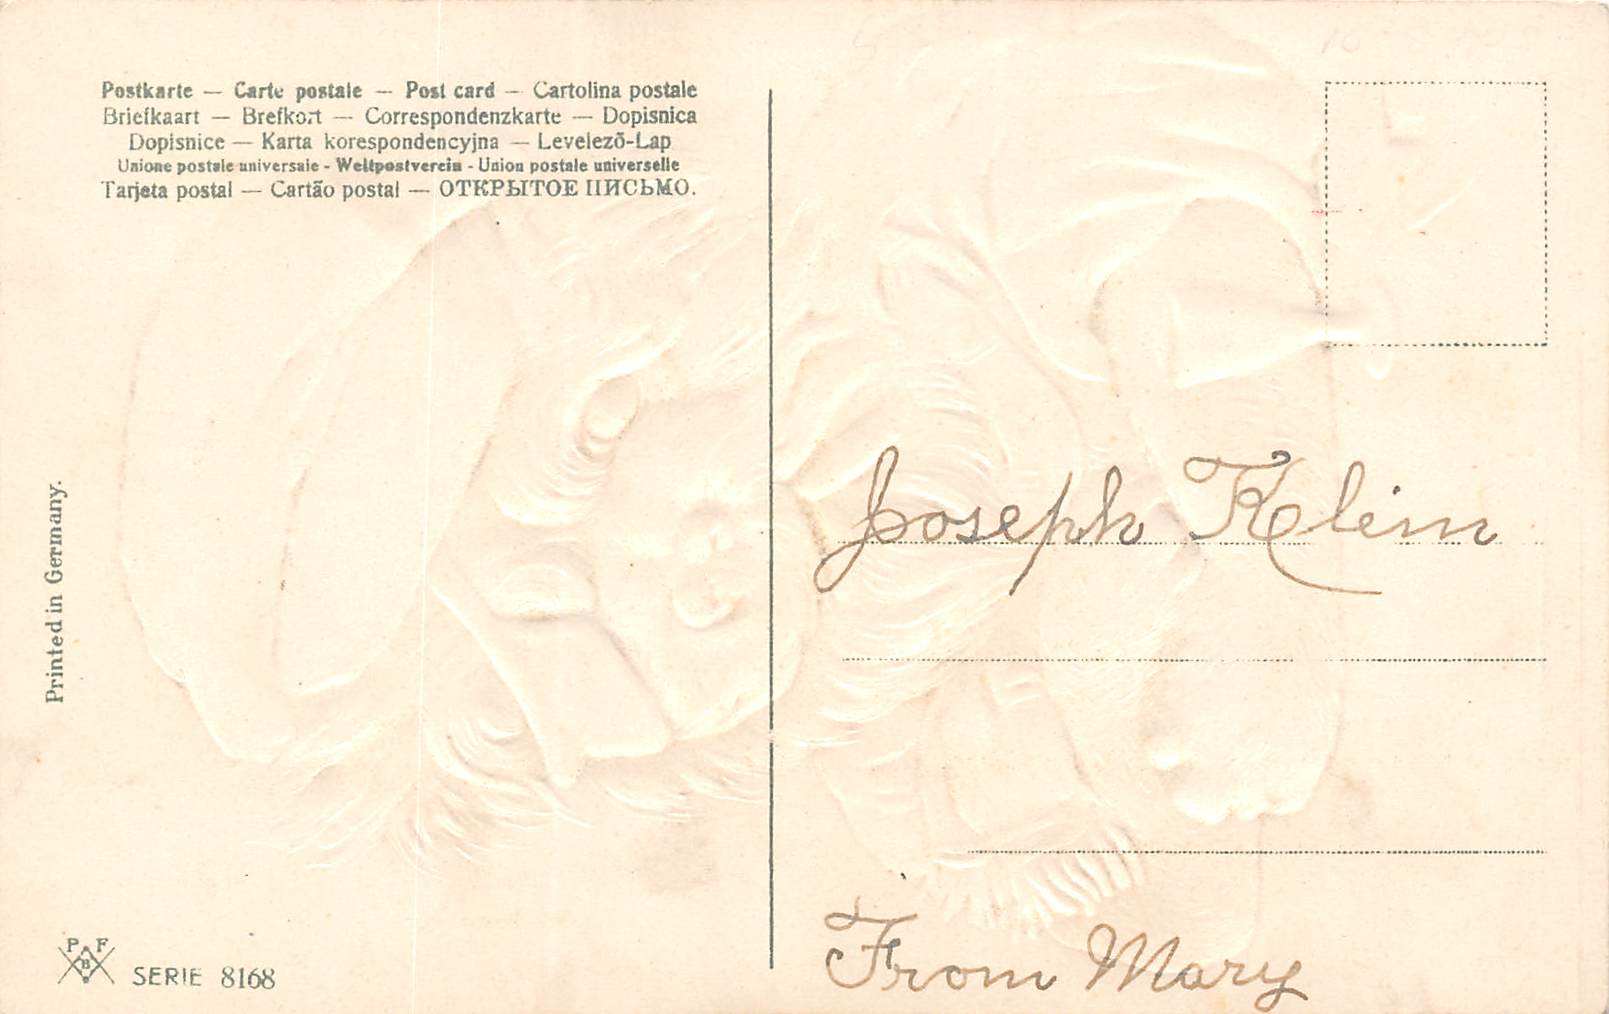 Postkarte — Carte postale — Post card — Cartolina postale
Briefkaart — Brefkort — Correspondenzkarte — Dopisnica
Dopisnice — Karta korespondencyjna — Levelezõ-Lap
Unione postale universale - Weltpostverein - Union postale universelle
Tarjeta postal — Cartão postal — ОТКРЫТОЕ ПИСЬМО.
Printed in Germany.
Joseph Klein
From Mary
P F
B
SERIE 8168